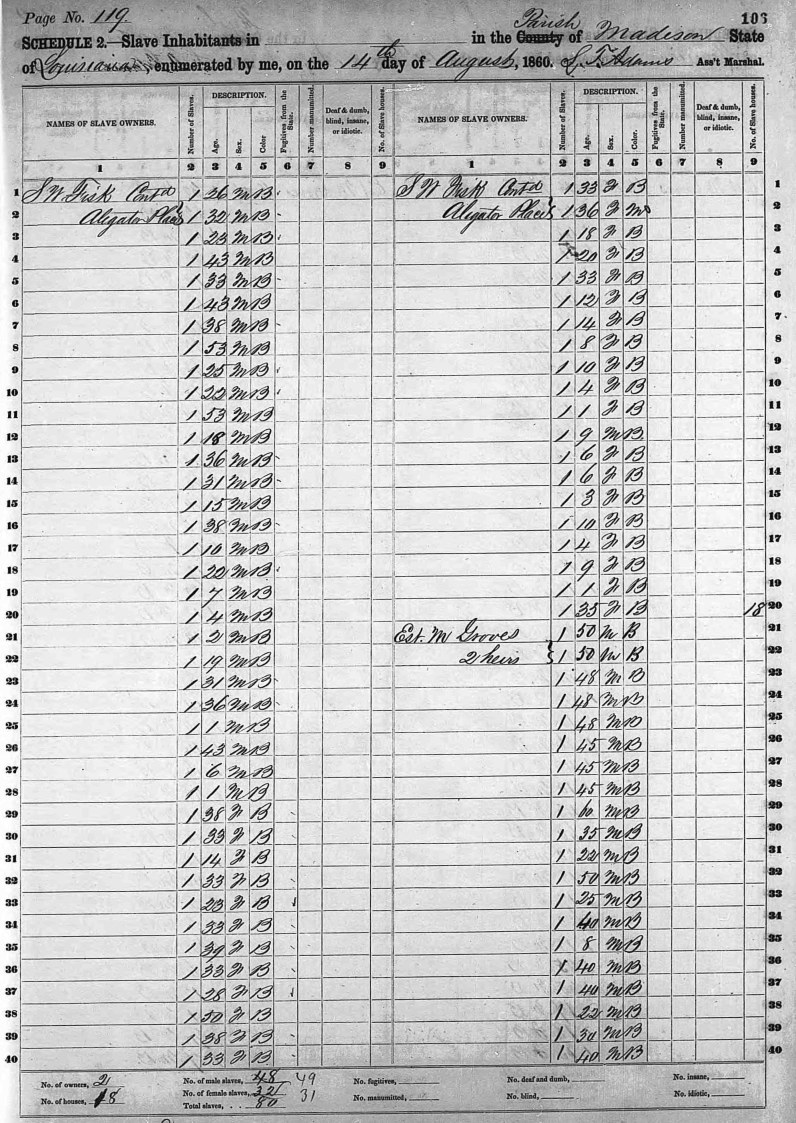 Page No. 119.
103
SCHEDULE 2.—Slave Inhabitants in in the County Parish of Madison State
of Louisiana, enumerated by me, on the 14th day of August, 1860. L. F. Adams Ass't Marshal.
NAMES OF SLAVE OWNERS. Number of Slaves. DESCRIPTION. Age. Sex. Color Fugitives from the State. Number manumitted. Deaf & dumb, blind, insane, or idiotic. No. of Slave houses. NAMES OF SLAVE OWNERS. Number of Slaves. DESCRIPTION. Age. Sex. Color. Fugitives from the State. Number manumitted. Deaf & dumb, blind, insane, or idiotic. No. of Slave houses.
1 2 3 4 5 6 7 8 9 1 2 3 4 5 6 7 8 9
1 S W Fisk Contd 1 26 M B S W Fisk Contd 1 33 F B 1
2 Aligator Place 1 32 M B Aligator Place 1 36 F M 2
3 1 23 M B 1 18 F B 3
4 1 43 M B 1 20 F B 4
5 1 33 M B 1 33 F B 5
6 1 43 M B 1 12 F B 6
7 1 38 M B 1 14 F B 7
8 1 53 M B 1 8 F B 8
9 1 25 M B 1 10 F B 9
10 1 22 M B 1 4 F B 10
11 1 53 M B 1 1 F B 11
12 1 18 M B 1 9 M B 12
13 1 36 M B 1 6 F B 13
14 1 31 M B 1 6 F B 14
15 1 15 M B 1 3 F B 15
16 1 38 M B 1 10 F B 16
17 1 10 M B 1 4 F B 17
18 1 22 M B 1 9 F B 18
19 1 7 M B 1 1 F B 19
20 1 4 M B 1 35 F B 18 20
21 1 2 M B Est. M Groves 1 50 M B 21
22 1 19 M B 2 heirs 1 50 M B 22
23 1 31 M B 1 48 M B 23
24 1 36 M B 1 48 M B 24
25 1 1 M B 1 48 M B 25
26 1 43 M B 1 45 M B 26
27 1 6 M B 1 45 M B 27
28 1 1 M B 1 45 M B 28
29 1 38 F B 1 60 M B 29
30 1 33 F B 1 35 M B 30
31 1 14 F B 1 22 M B 31
32 1 33 F B 1 50 M B 32
33 1 23 F B 1 25 M B 33
34 1 33 F B 1 40 M B 34
35 1 39 F B 1 8 M B 35
36 1 33 F B 1 40 M B 36
37 1 28 F B 1 40 M B 37
38 1 50 F B 1 22 M B 38
39 1 38 F B 1 30 M B 39
40 1 33 F B 1 40 M B 40
No. of owners, 2 No. of male slaves, 48 49 No. fugitives, No. deaf and dumb, No. insane,
No. of houses, 18 No. of female slaves, 32 31 No. manumitted, No. blind, No. idiotic,
Total slaves, 80